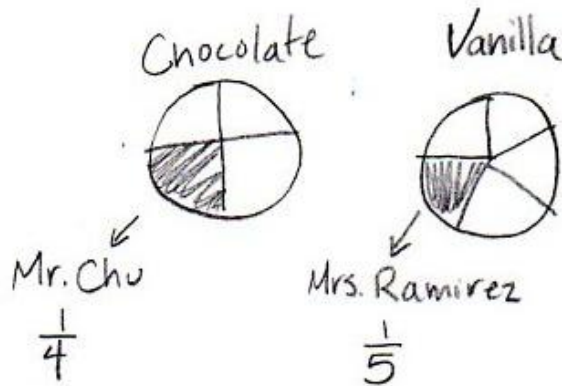 Chocolate
Vanilla
Mr. Chu
Mrs. Ramirez
1/4
1/5